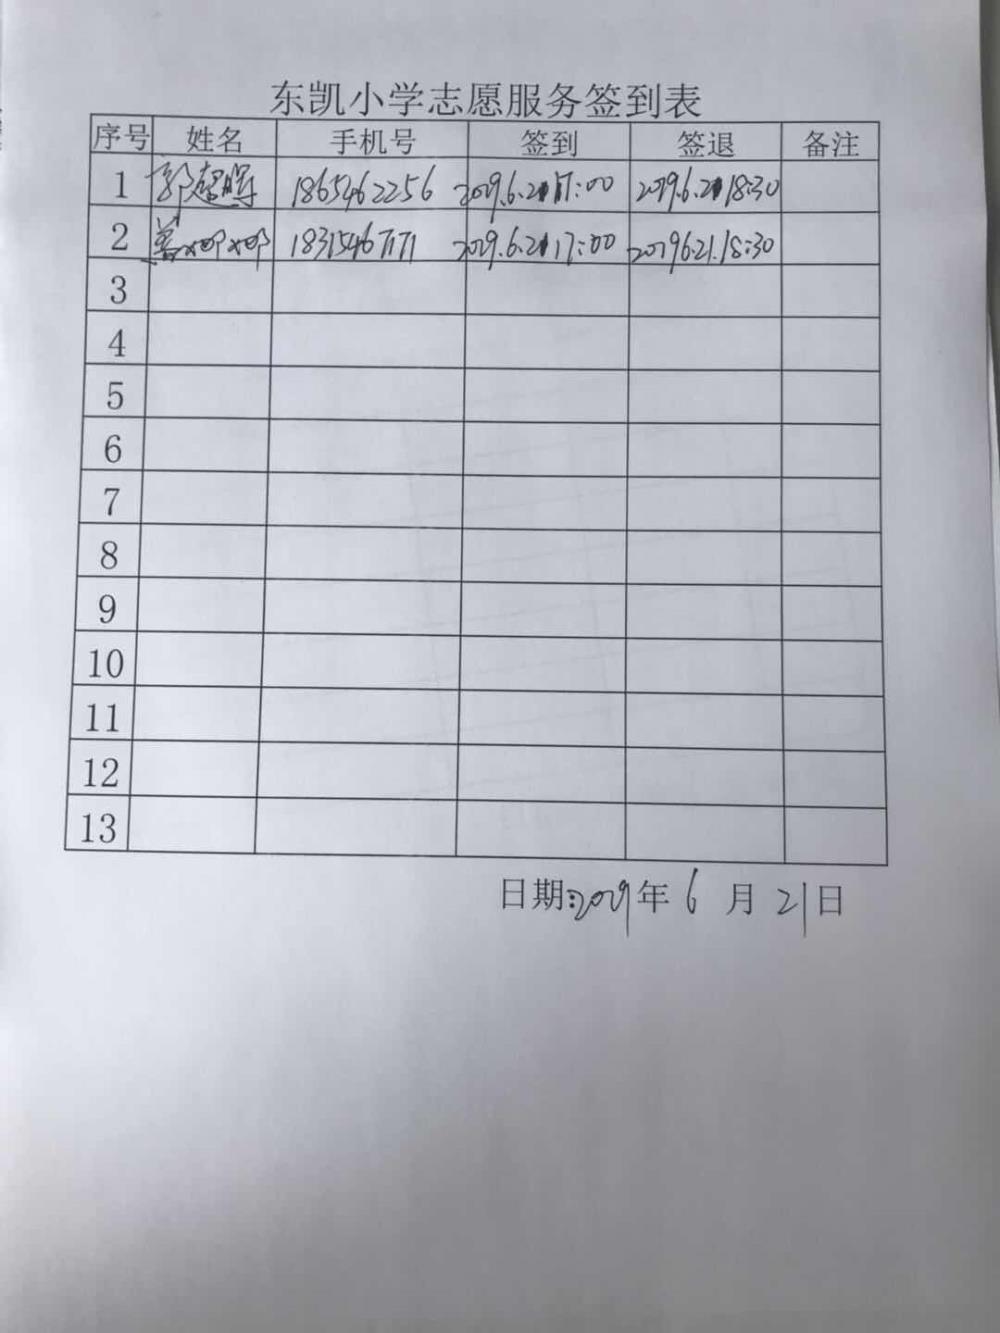 东凯小学志愿服务签到表
序号 姓名 手机号 签到 签退 备注
1 郭 18654622256 2019.6.21 17:00 2019.6.21 18:30
2 姜娜娜 18315467171 2019.6.21 17:00 2019.6.21.18:30
3
4
5
6
7
8
9
10
11
12
13
日期:2019年6月21日